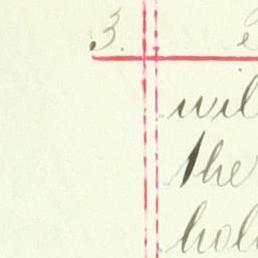 3.
wil
the
hol